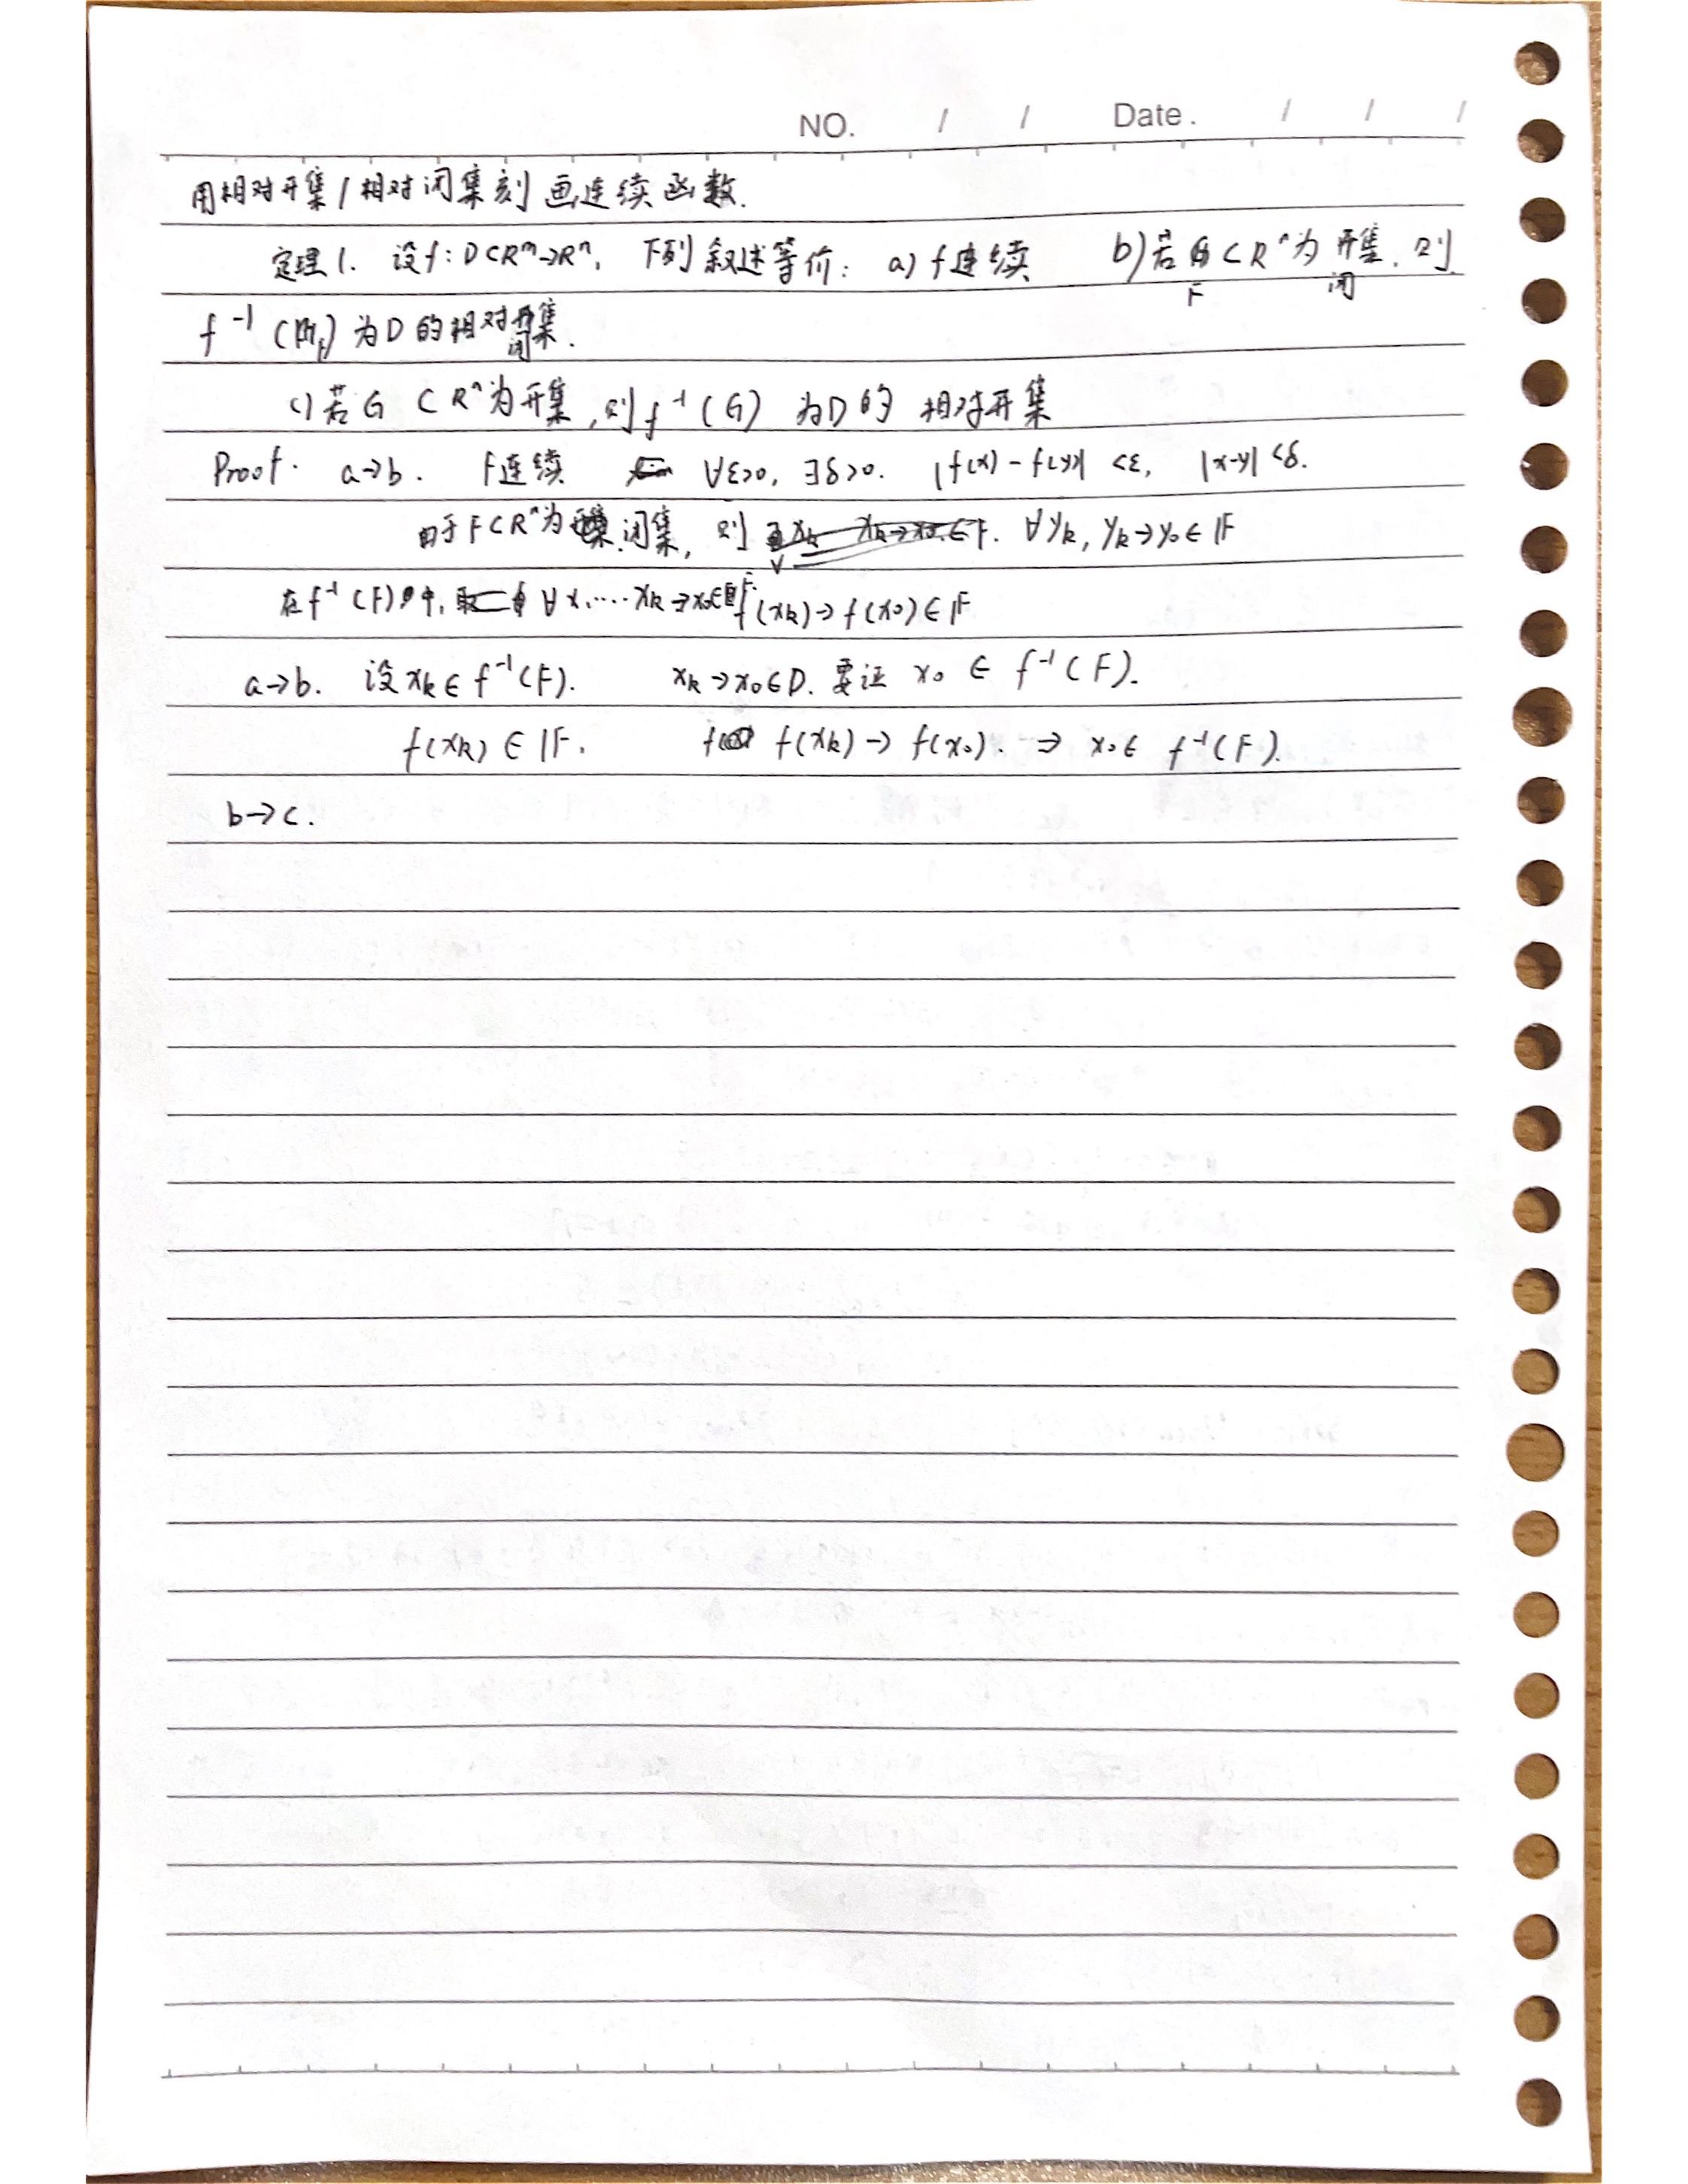 NO. / / Date. / / /
用相对开集/相对闭集刻画连续函数.
定理1. 设f: D⊂Rᵐ→Rⁿ, 下列叙述等价: a) f连续 b)若 ⊂Rⁿ为开集. 则
F 闭
f⁻¹(F)为D的相对闭集.
c)若G⊂Rⁿ为开集,则f⁻¹(G)为D的 相对开集
Proof. a→b. f连续 ∀ε>0, ∃δ>0. |f(x)-f(y)|<ε, |x-y|<δ.
由于F⊂Rⁿ为闭集, 则 ∀yₖ, yₖ→y₀∈F
在f⁻¹(F)中, ∀x,....xₖ→x₀∈F. f(xₖ)→f(x₀)∈F
a→b. 设xₖ∈f⁻¹(F). xₖ→x₀∈D. 要证 x₀∈f⁻¹(F).
f(xₖ)∈F. f(xₖ)→f(x₀). ⇒ x₀∈f⁻¹(F).
b→c.